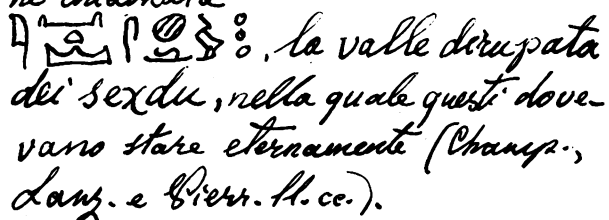 , la valle dirupata
dei sexdu, nella quale questi dove-
vano stare eternamente (Champ.,
Lanz. e Pierr. ll. cc.).